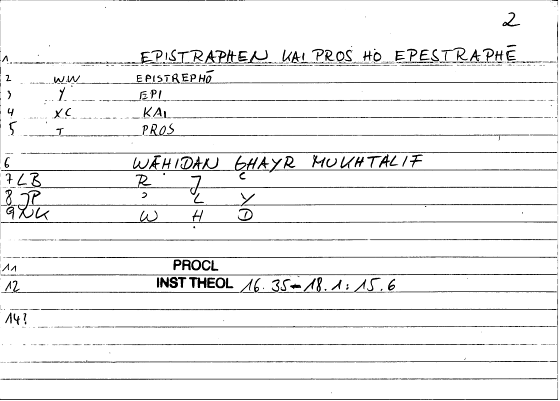 2
1 EPISTRAPHEN KAI PROS HO EPESTRAPHĒ
2 WW EPISTREPHŌ
3 Y EPI
4 XC KAI
5 T PROS
6 WĀHIDAN GHAYR MUKHTALIF
7 LB R J ʿ
8 JP ʾ L Y
9 NK W Ḥ D
11 PROCL
12 INST THEOL 16.35-18.1: 15.6
14?